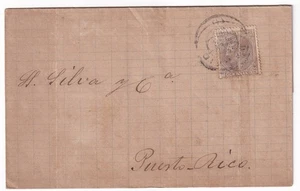 Silva y Cᵃ.
Puerto-Rico.